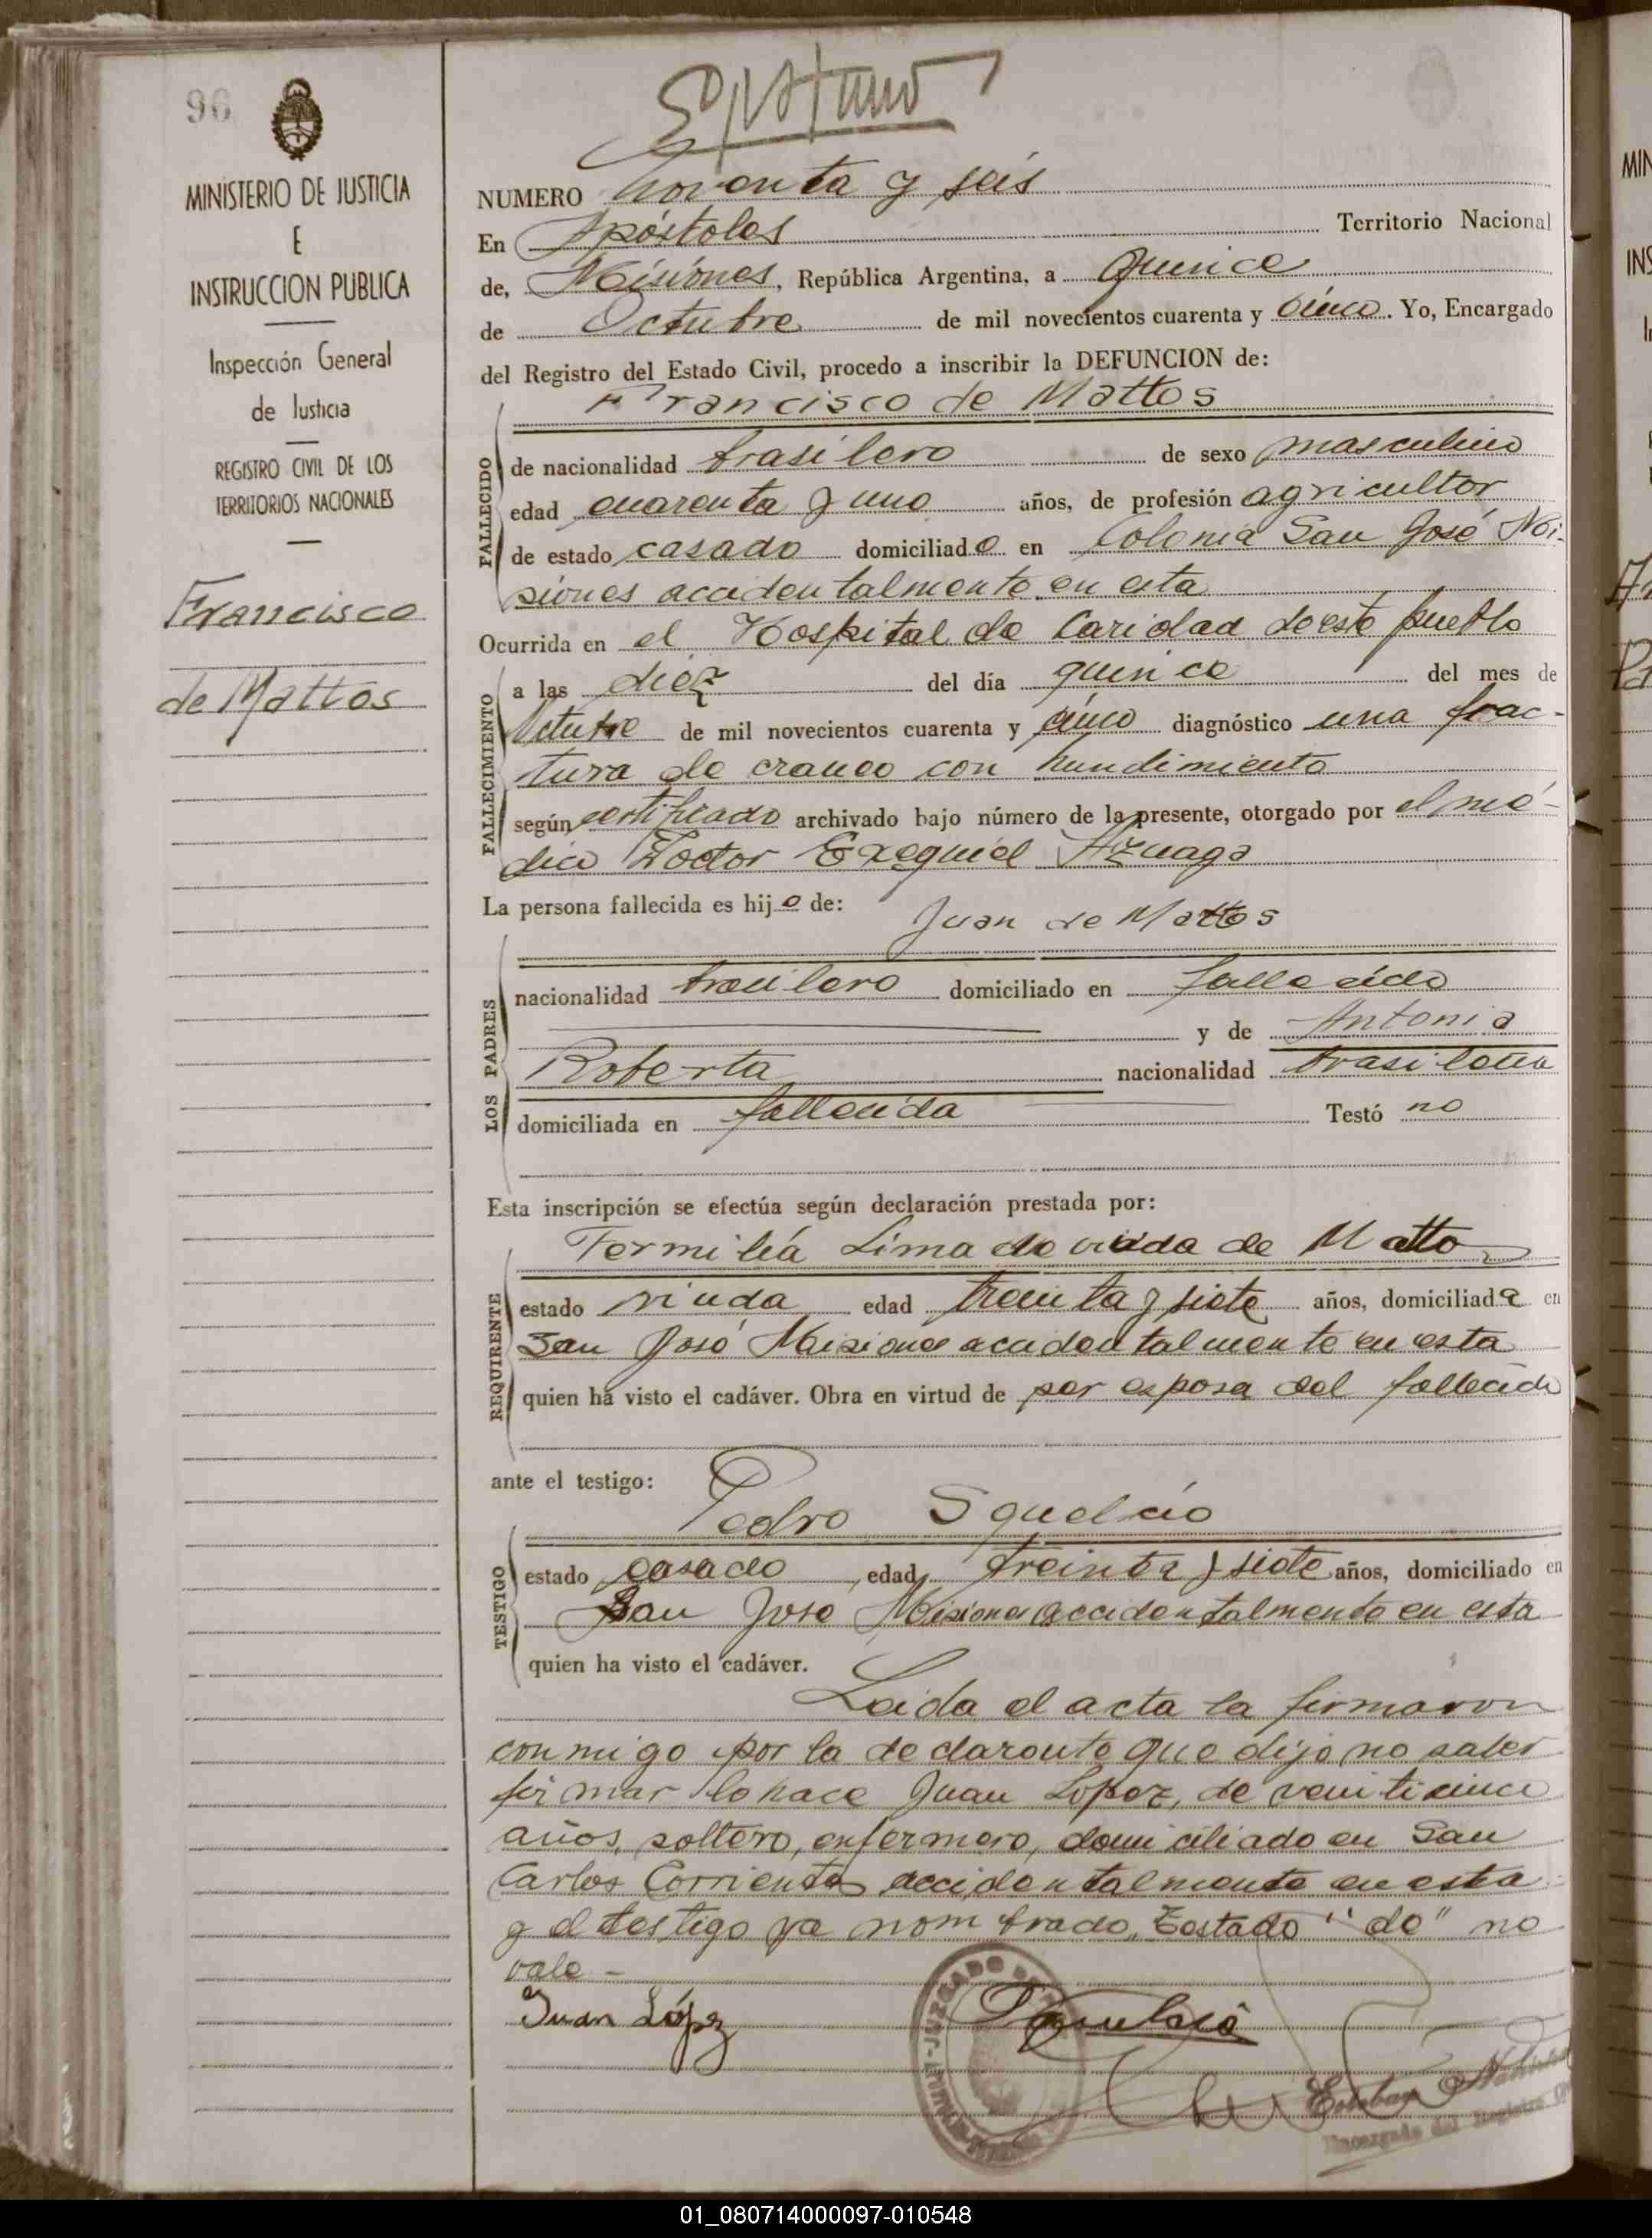 96
MINISTERIO DE JUSTICIA
E
INSTRUCCION PUBLICA
Inspección General
de Justicia
REGISTRO CIVIL DE LOS
TERRITORIOS NACIONALES
Francisco
de Mattos
NUMERO noventa y seis
En Apóstoles Territorio Nacional
de, Misiones, República Argentina, a quince
de Octubre de mil novecientos cuarenta y cinco. Yo, Encargado
del Registro del Estado Civil, procedo a inscribir la DEFUNCION de:
Francisco de Mattos
FALLECIDO
de nacionalidad brasilero de sexo masculino
edad cuarenta y uno años, de profesión agricultor
de estado casado domiciliado en Colonia San José Mi-
siones accidentalmente en esta
Ocurrida en el Hospital de Caridad de este pueblo
FALLECIMIENTO
a las diez del día quince del mes de
Octubre de mil novecientos cuarenta y cinco diagnóstico una frac-
tura de craneo con hundimiento
según certificado archivado bajo número de la presente, otorgado por el mé-
dico Doctor Exequiel Aznaga
La persona fallecida es hijo de:
Juan de Mattos
LOS PADRES
nacionalidad brasilero domiciliado en fallecido
y de Antonia
Roberta nacionalidad brasilera
domiciliada en fallecida Testó no
Esta inscripción se efectúa según declaración prestada por:
Lima de viuda de Mattos
REQUIRENTE
estado viuda edad treinta y siete años, domiciliada en
San José Misiones accidentalmente en esta
quien ha visto el cadáver. Obra en virtud de ser esposa del fallecido
ante el testigo:
Pedro
TESTIGO
estado casado, edad, treinta y siete años, domiciliado en
San José Misiones accidentalmente en esta
quien ha visto el cadáver.
Leida el acta la firmaron
conmigo por la declarante que dijo no saber
firmar lo hace Juan Lopez, de veinticinco
años, soltero, enfermero, domiciliado en San
Carlos Corrientes accidentalmente en esta
y el testigo ya nombrado, Testado "de" no
vale -
Juan López
JUZGADO DE
Esteban
Encargado del Registro
01_080714000097-010548